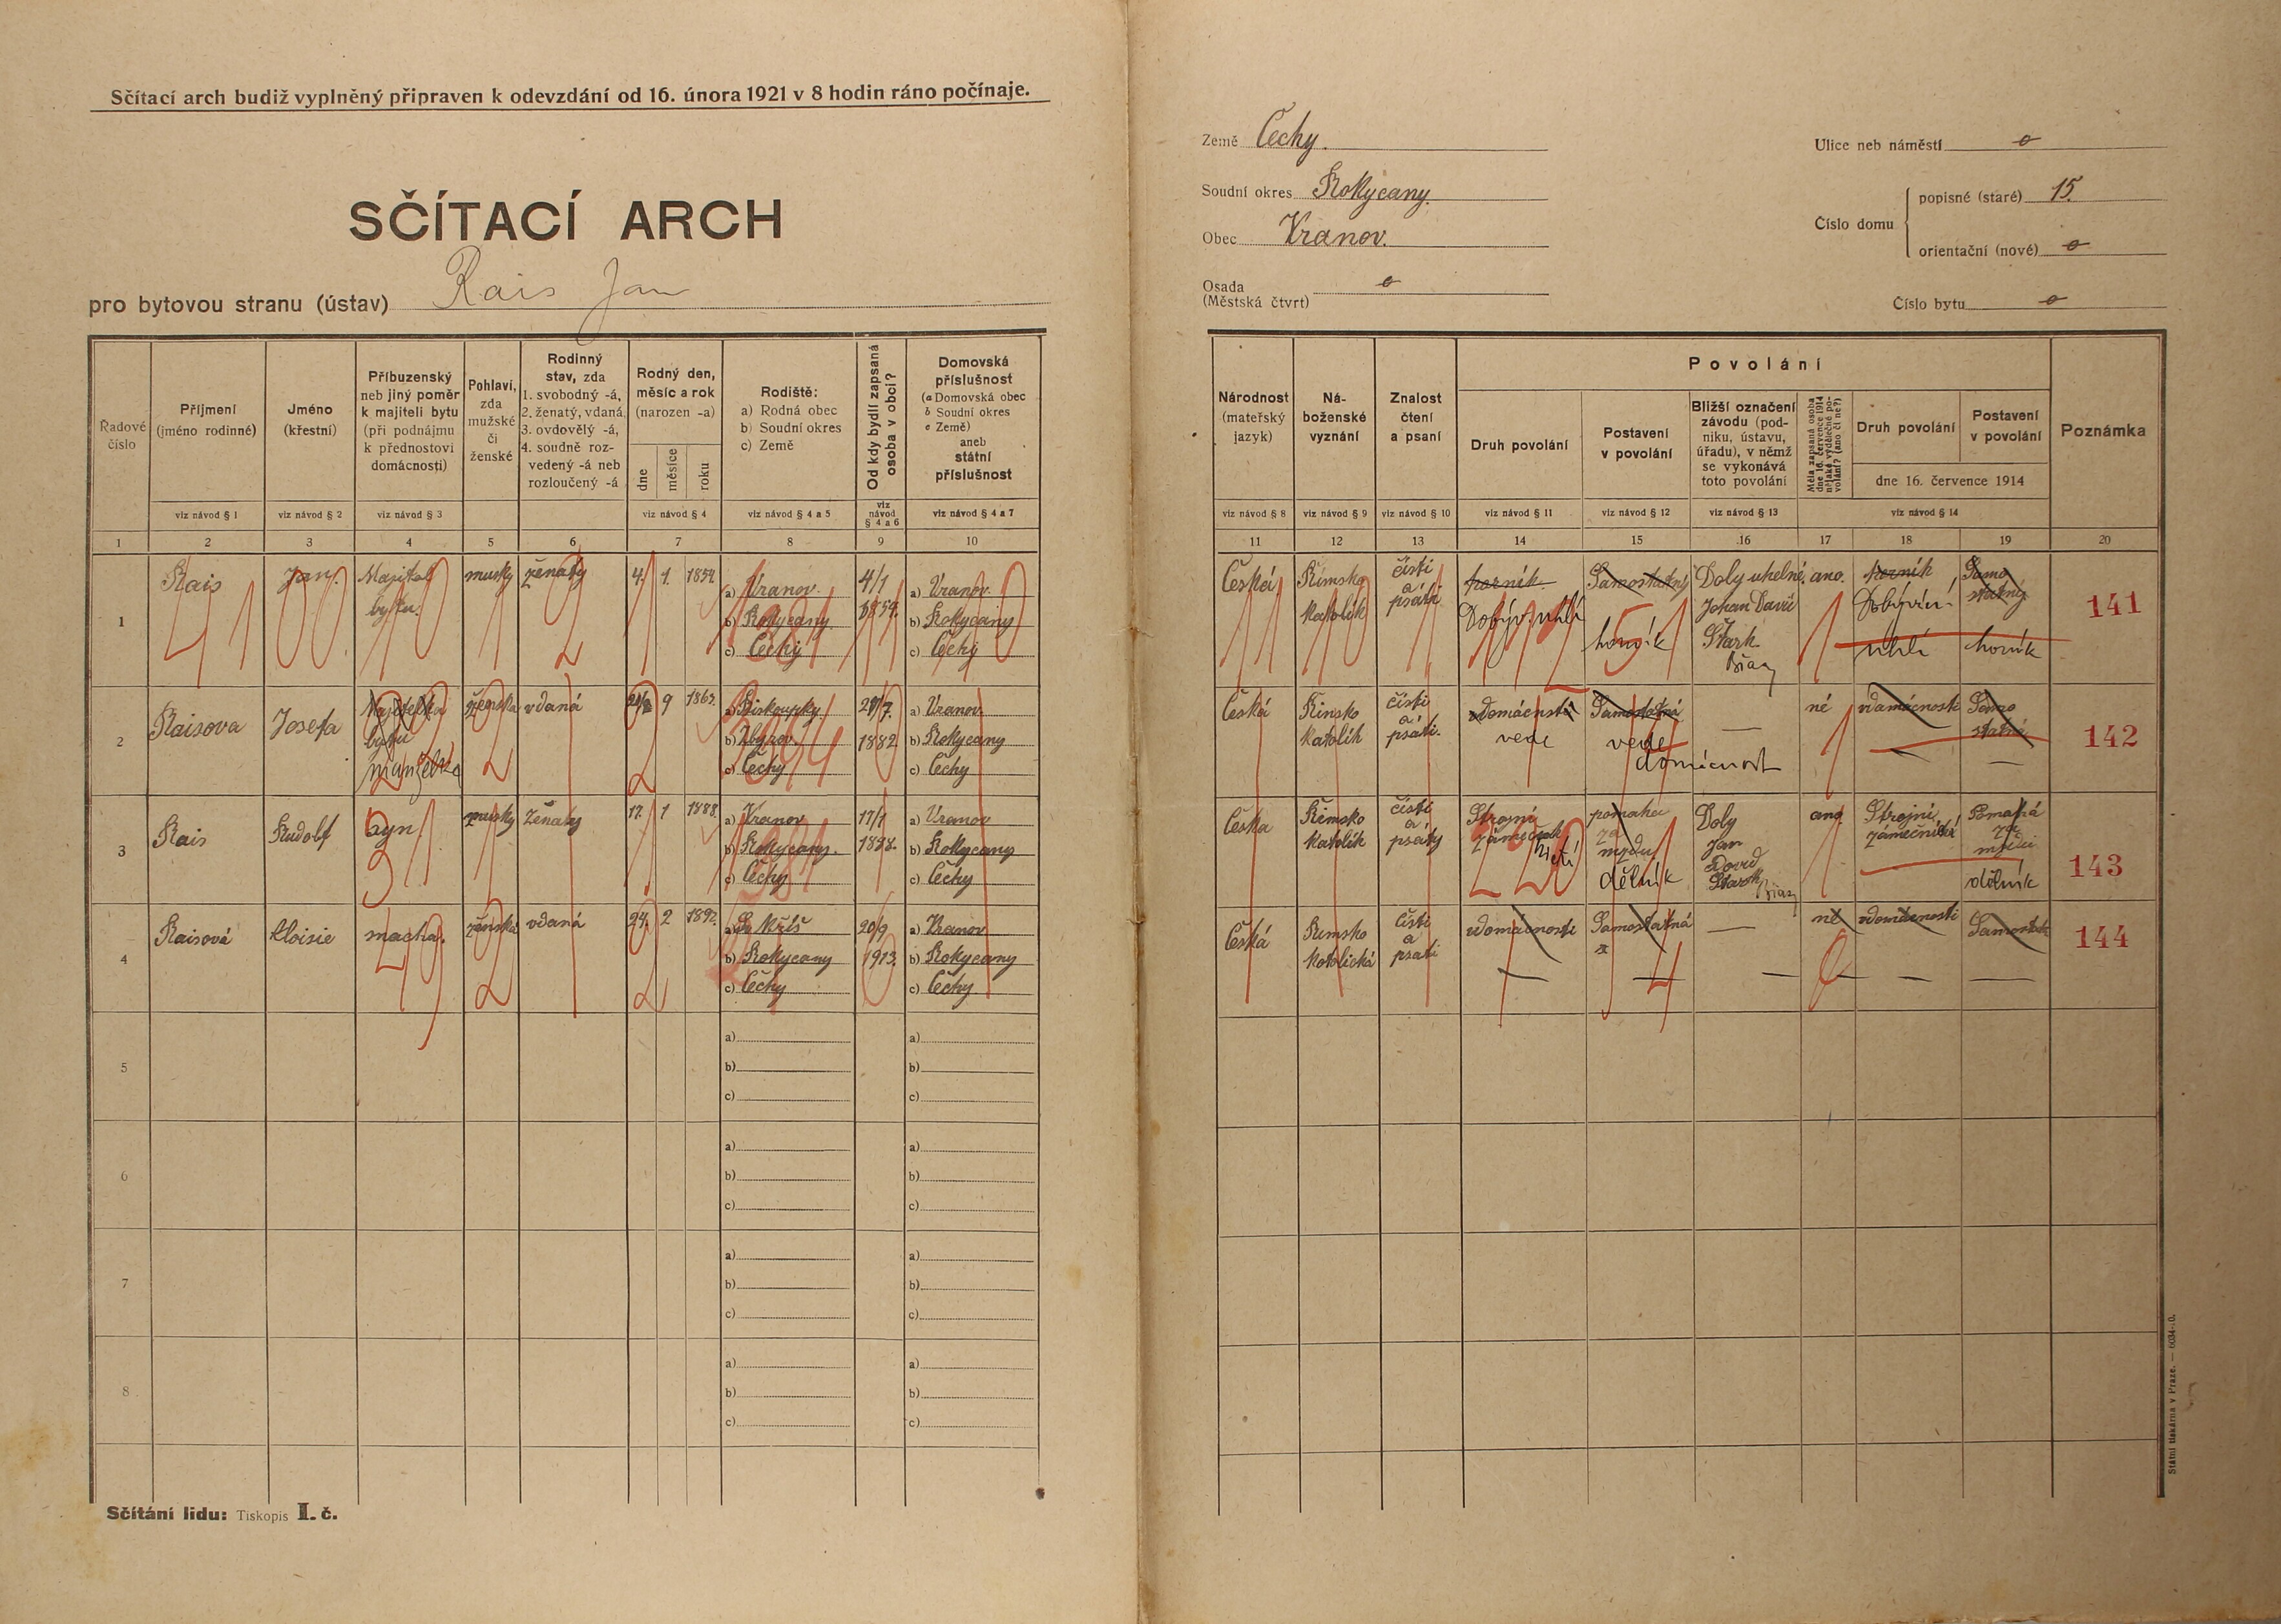 Sčítací arch budiž vyplněný připraven k odevzdání od 16. února 1921 v 8 hodin ráno počínaje.
SČÍTACÍ ARCH
pro bytovou stranu (ústav) Rais Jan
Země Čechy.
Soudní okres Rokycany.
Obec Vranov.
Osada
(Městská čtvrt) o
Ulice neb náměstí o
Číslo domu
popisné (staré) 15.
orientační (nové) o
Číslo bytu o
Řadové číslo
Příjmení (jméno rodinné)
Jméno (křestní)
Příbuzenský neb jiný poměr k majiteli bytu (při podnájmu k přednostovi domácnosti)
Pohlaví, zda mužské či ženské
Rodinný stav, zda 1. svobodný -á, 2. ženatý, vdaná, 3. ovdovělý -á, 4. soudně rozvedený -á neb rozloučený -á
Rodný den, měsíc a rok (narozen -a)
dne měsíce roku
Rodiště:
a) Rodná obec
b) Soudní okres
c) Země
Od kdy bydlí zapsaná osoba v obci?
Domovská příslušnost
(a Domovská obec
b Soudní okres
c Země)
aneb státní příslušnost
Národnost (mateřský jazyk)
Náboženské vyznání
Znalost čtení a psaní
Povolání
Druh povolání
Postavení v povolání
Bližší označení závodu (podniku, ústavu, úřadu), v němž se vykonává toto povolání
Měla zapsaná osoba dne 16. července 1914 nějaké výdělečné povolání? (ano či ne?)
Druh povolání
Postavení v povolání
dne 16. července 1914
Poznámka
viz návod § 1 viz návod § 2 viz návod § 3 viz návod § 4 viz návod § 4 a 5 viz návod § 4 a 6 viz návod § 4 a 7
viz návod § 8 viz návod § 9 viz návod § 10 viz návod § 11 viz návod § 12 viz návod § 13 viz návod § 14
1 2 3 4 5 6 7 8 9 10 11 12 13 14 15 16 17 18 19 20
1 Rais Jan. Majitel bytu. musky ženatý 4. 1. 1854
a) Vranov.
b) Rokycany.
c) Čechy
4/1 1854.
a) Vranov.
b) Rokycany
c) Čechy
Česká Římsko katolík čísti a psáti horník Dobýv. uhlí Samostatný horník Doly uhelné Johan Stark ano. horník Dobývání uhlí Samostatný horník 141
2 Raisova Josefa Majitelka bytu manželka ženska vdaná 9 1863.
a) Biskoupky.
b) Zbirov.
c) Čechy
1882
a) Vranov
b) Rokycany
c) Čechy
Česká Rimsko katolík čísti a psáti. vdomácnosti vede Samostatná vede domácnost — né vdomácnosti — Samostatná — 142
3 Rais Rudolf syn musky ženatý 17. 1 1888.
a) Vranov
b) Rokycany.
c) Čechy
17/1 1888.
a) Vranov
b) Rokycany
c) Čechy
Česka Římsko katolík čísti a psáty Strojní zámečník pomaha za mzdu dělník Doly Jan David Stark ano Strojní zámečnictví Pomahá za mzdu dělník 143
4 Raisová Aloisie macha. ženska vdaná 24. 2 1892.
b) Rokycany
c) Čechy
20/9 1913.
a) Vranov
b) Rokycany
c) Čechy
Česká Rimsko katolická čísti a psáti vdomácnosti — Samostatná — — — né vdomácnosti — Samostatná — 144
5
a)
b)
c)
a)
b)
c)
6
a)
b)
c)
a)
b)
c)
7
a)
b)
c)
a)
b)
c)
8
a)
b)
c)
a)
b)
c)
Sčítání lidu: Tiskopis I. č.
Státní tiskárna v Praze. — 6034-20.